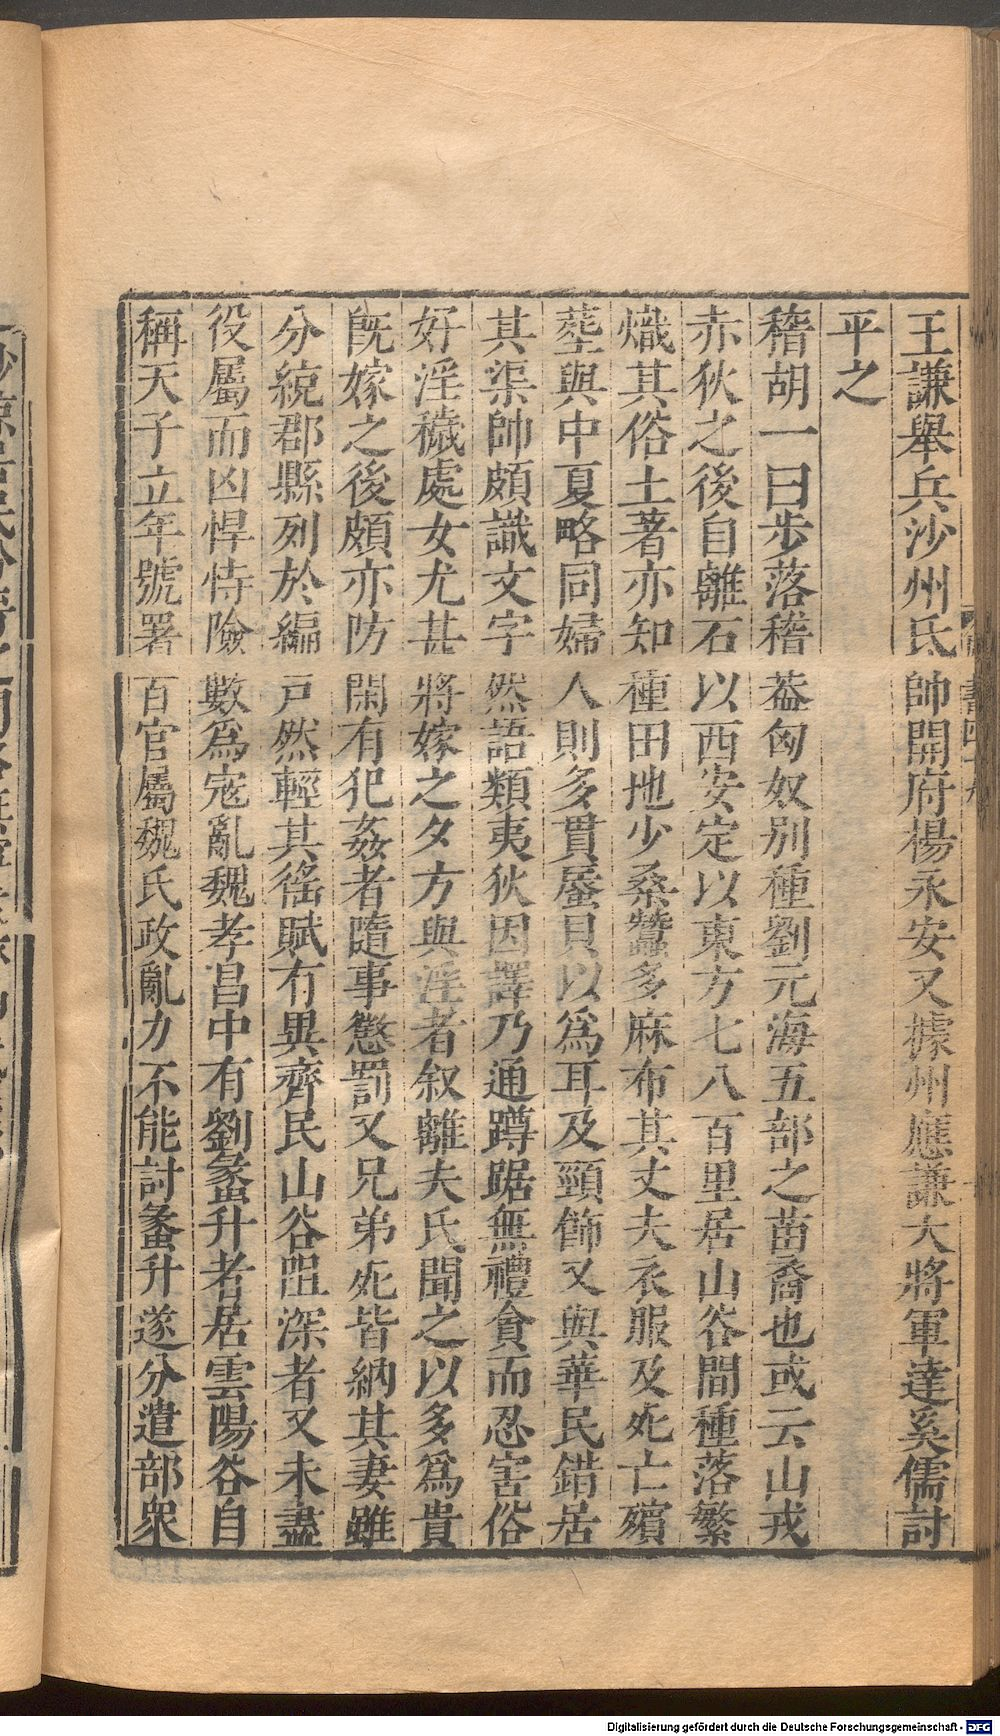 王謙舉兵沙州氐帥開府楊永安又據州應謙大將軍達奚儒討
平之
稽胡一曰步落稽葢匈奴別種劉元海五部之苗裔也或云山戎
赤狄之後自離石以西安定以東方七八百里居山谷間種落繁
熾其俗土著亦知種田地少桑蠶多麻布其丈夫衣服及死亡殯
塟與中夏略同婦人則多貫蜃貝以爲耳及頸飾又與華民錯居
其渠帥頗識文字然語類夷狄因譯乃通蹲踞無禮貪而忍害俗
好淫穢處女尤甚將嫁之夕方與淫者叙離夫氏聞之以多爲貴
旣嫁之後頗亦防閑有犯姦者隨事懲罰又兄弟死皆納其妻雖
分統郡縣列於編戸然輕其徭賦有異齊民山谷阻深者又未盡
役屬而凶悍恃險數爲寇亂魏孝昌中有劉蠡升者居雲陽谷自
稱天子立年號署百官屬魏氏政亂力不能討蠡升遂分遣部衆
Digitalisierung gefördert durch die Deutsche Forschungsgemeinschaft - DFG